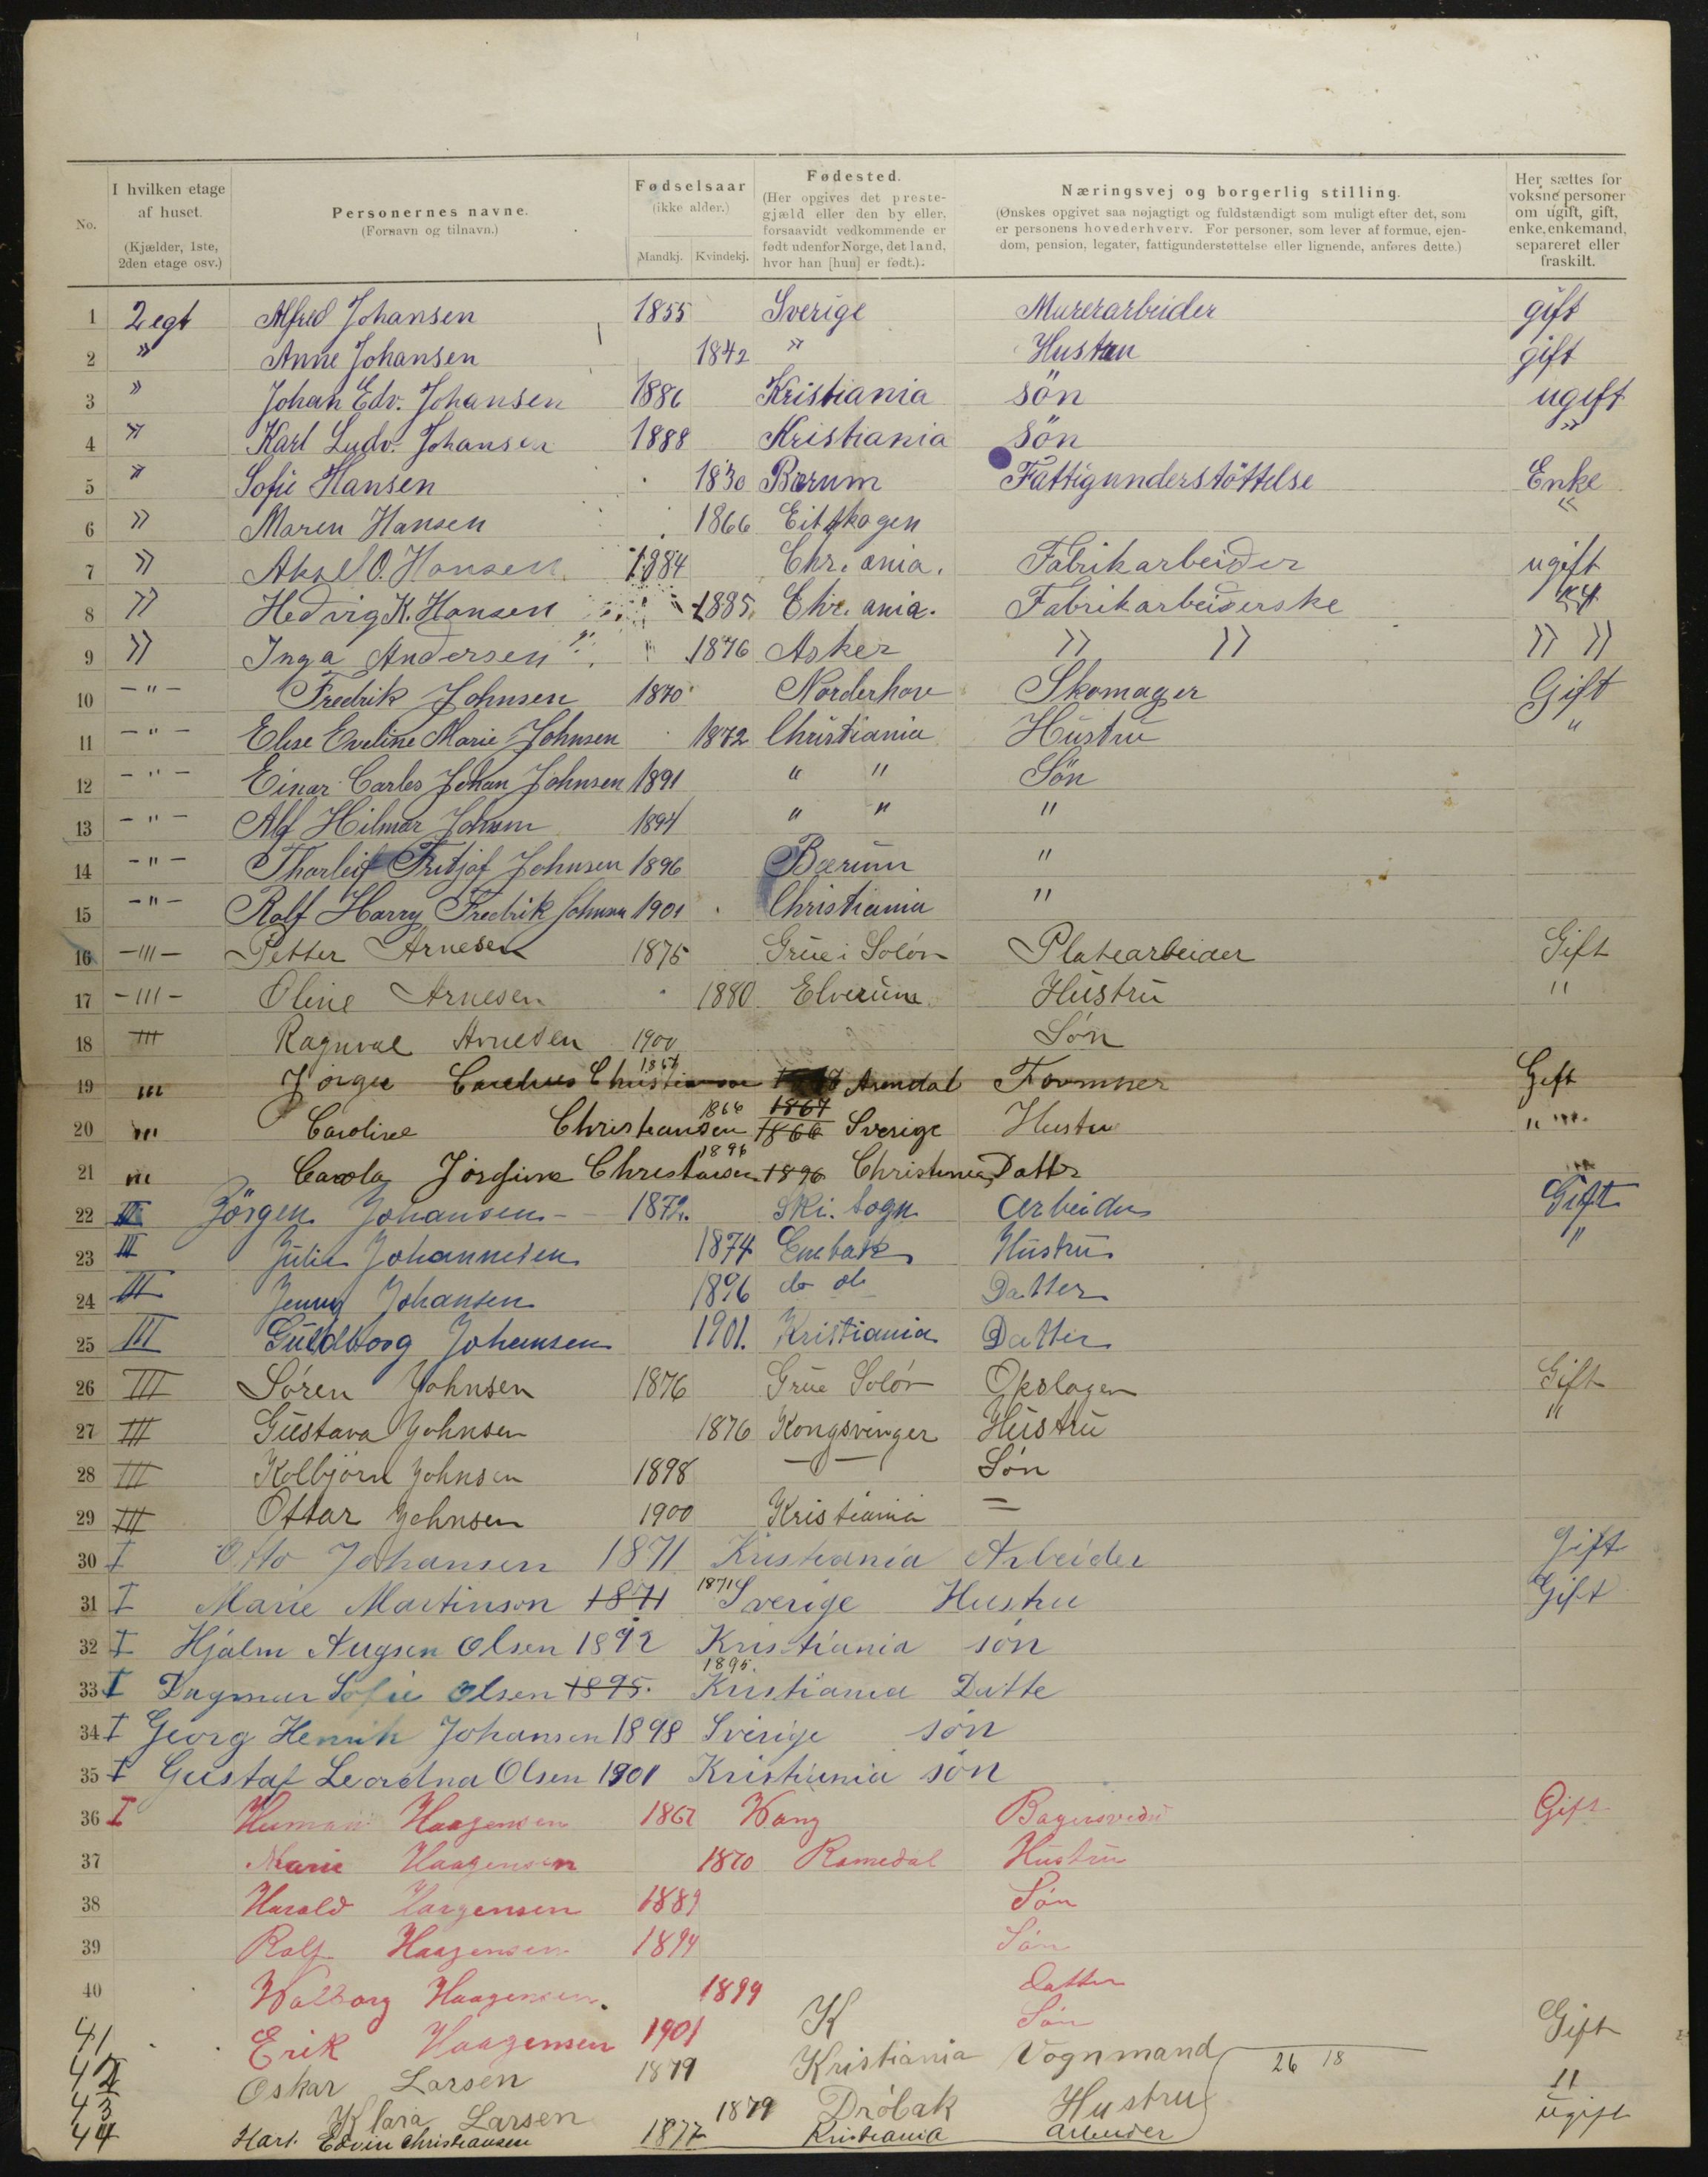 No. | I hvilken etage af huset. (Kjælder, 1ste, 2den etage osv.) | Personernes navne. (Fornavn og tilnavn.) | Fødselsaar (ikke alder.) Mandkj. Kvindekj. | Fødested. (Her opgives det prestegjæld eller den by eller, forsaavidt vedkommende er født udenfor Norge, det land, hvor han [hun] er født.). | Næringsvej og borgerlig stilling. (Ønskes opgivet saa nøjagtigt og fuldstændigt som muligt efter det, som er personens hovederhverv. For personer, som lever af formue, ejendom, pension, legater, fattigunderstøttelse eller lignende, anføres dette.) | Her sættes for voksne personer om ugift, gift, enke, enkemand, separeret eller fraskilt.
1 2 egt Alfred Johansen 1855 Sverige Murerarbeider gift
2 " Anne Johansen 1842 " Hustru gift
3 " Johan Edv. Johansen 1886 Kristiania sön ugift
4 " Karl Ludv. Johansen 1888 Kristiania Sön "
5 " Sofie Hansen 1830 Bærum Fattigunderstöttelse Enke
6 " Maren Hansen 1866 Eidskogen "
7 " Aksel O. Hansen 1884 Chr.ania. Fabrikarbeider ugift
8 " Hedvig K. Hansen 1885 Chr.ania. Fabrikarbeiderske
9 " Inga Andersen 1876 Asker " " " "
10 - " - Fredrik Johnsen 1870 Norderhov Skomager Gift
11 - " - Elise Eveline Marie Johnsen 1872 Christiania Hustru "
12 - " - Einar Carles Johan Johnsen 1891 " " Sön
13 - " - Alf Hilmar Johnsen 1894 " " "
14 - " - Tharleif Fritjof Johnsen 1896 Bærum "
15 - " - Rolf Harry Fredrik Johnsen 1901 Christiania "
16 - III - Petter Arnesen 1875 Grue i Solør Platearbeider Gift
17 - III - Oline Arnesen 1880 Elverum Hustru "
18 III Ragnval Arnesen 1900 Søn
19 III Jørgen Christiansen Arendal Formner Gift
20 III Caroline Christiansen 1866 1867 1866 Sverige Hustru "
21 III Carola Jørgine Christiansen 1896 1896 Christiania Datter
22 III Jörgen Johansen 1872. Ski. sogn Arbeider Gift
23 III Julie Johannesen 1874 Enebak Hustru "
24 III Jenny Johansen 1896 do do Datter
25 III Guldborg Johansen 1901. Kristiania Datter
26 III Søren Johnsen 1876 Grue Solør Oplagen Gift
27 III Gustava Johnsen 1876 Kongsvinger Hustru "
28 III Kolbjørn Johnsen 1898 - " - Søn
29 III Ottar Johnsen 1900 Kristiania =
30 I Otto Johansen 1871 Kristiania Arbeider Gift
31 I Marie Martinson 1871 1871 Sverige Hustru Gift
32 I Hjalm Augsen Olsen 1892 Kristiania søn
33 I Dagmar Sofie Olsen 1895. 1895. Kristiania Datte
34 I Georg Henrik Johansen 1898 Sverige søn
35 I Gustaf Leordna Olsen 1901 Kristiania søn
36 I Herman Haagensen 1867 Wang Bagersvend Gift
37 Marie Haagensen 1870 Romedal Hustru
38 Harald Haagensen 1889 Søn
39 Rolf Haagensen 1894 Søn
40 Walborg Haagensen. 1899 Datter
41 Erik Haagensen 1901 K Søn
42 Oskar Larsen 1879 Kristiania Vognmand Gift
26 18
43 Klara Larsen 1879 Drøbak Hustru "
44 Karl Edvin Christiansen 1877 Kristiania arbeider ugift